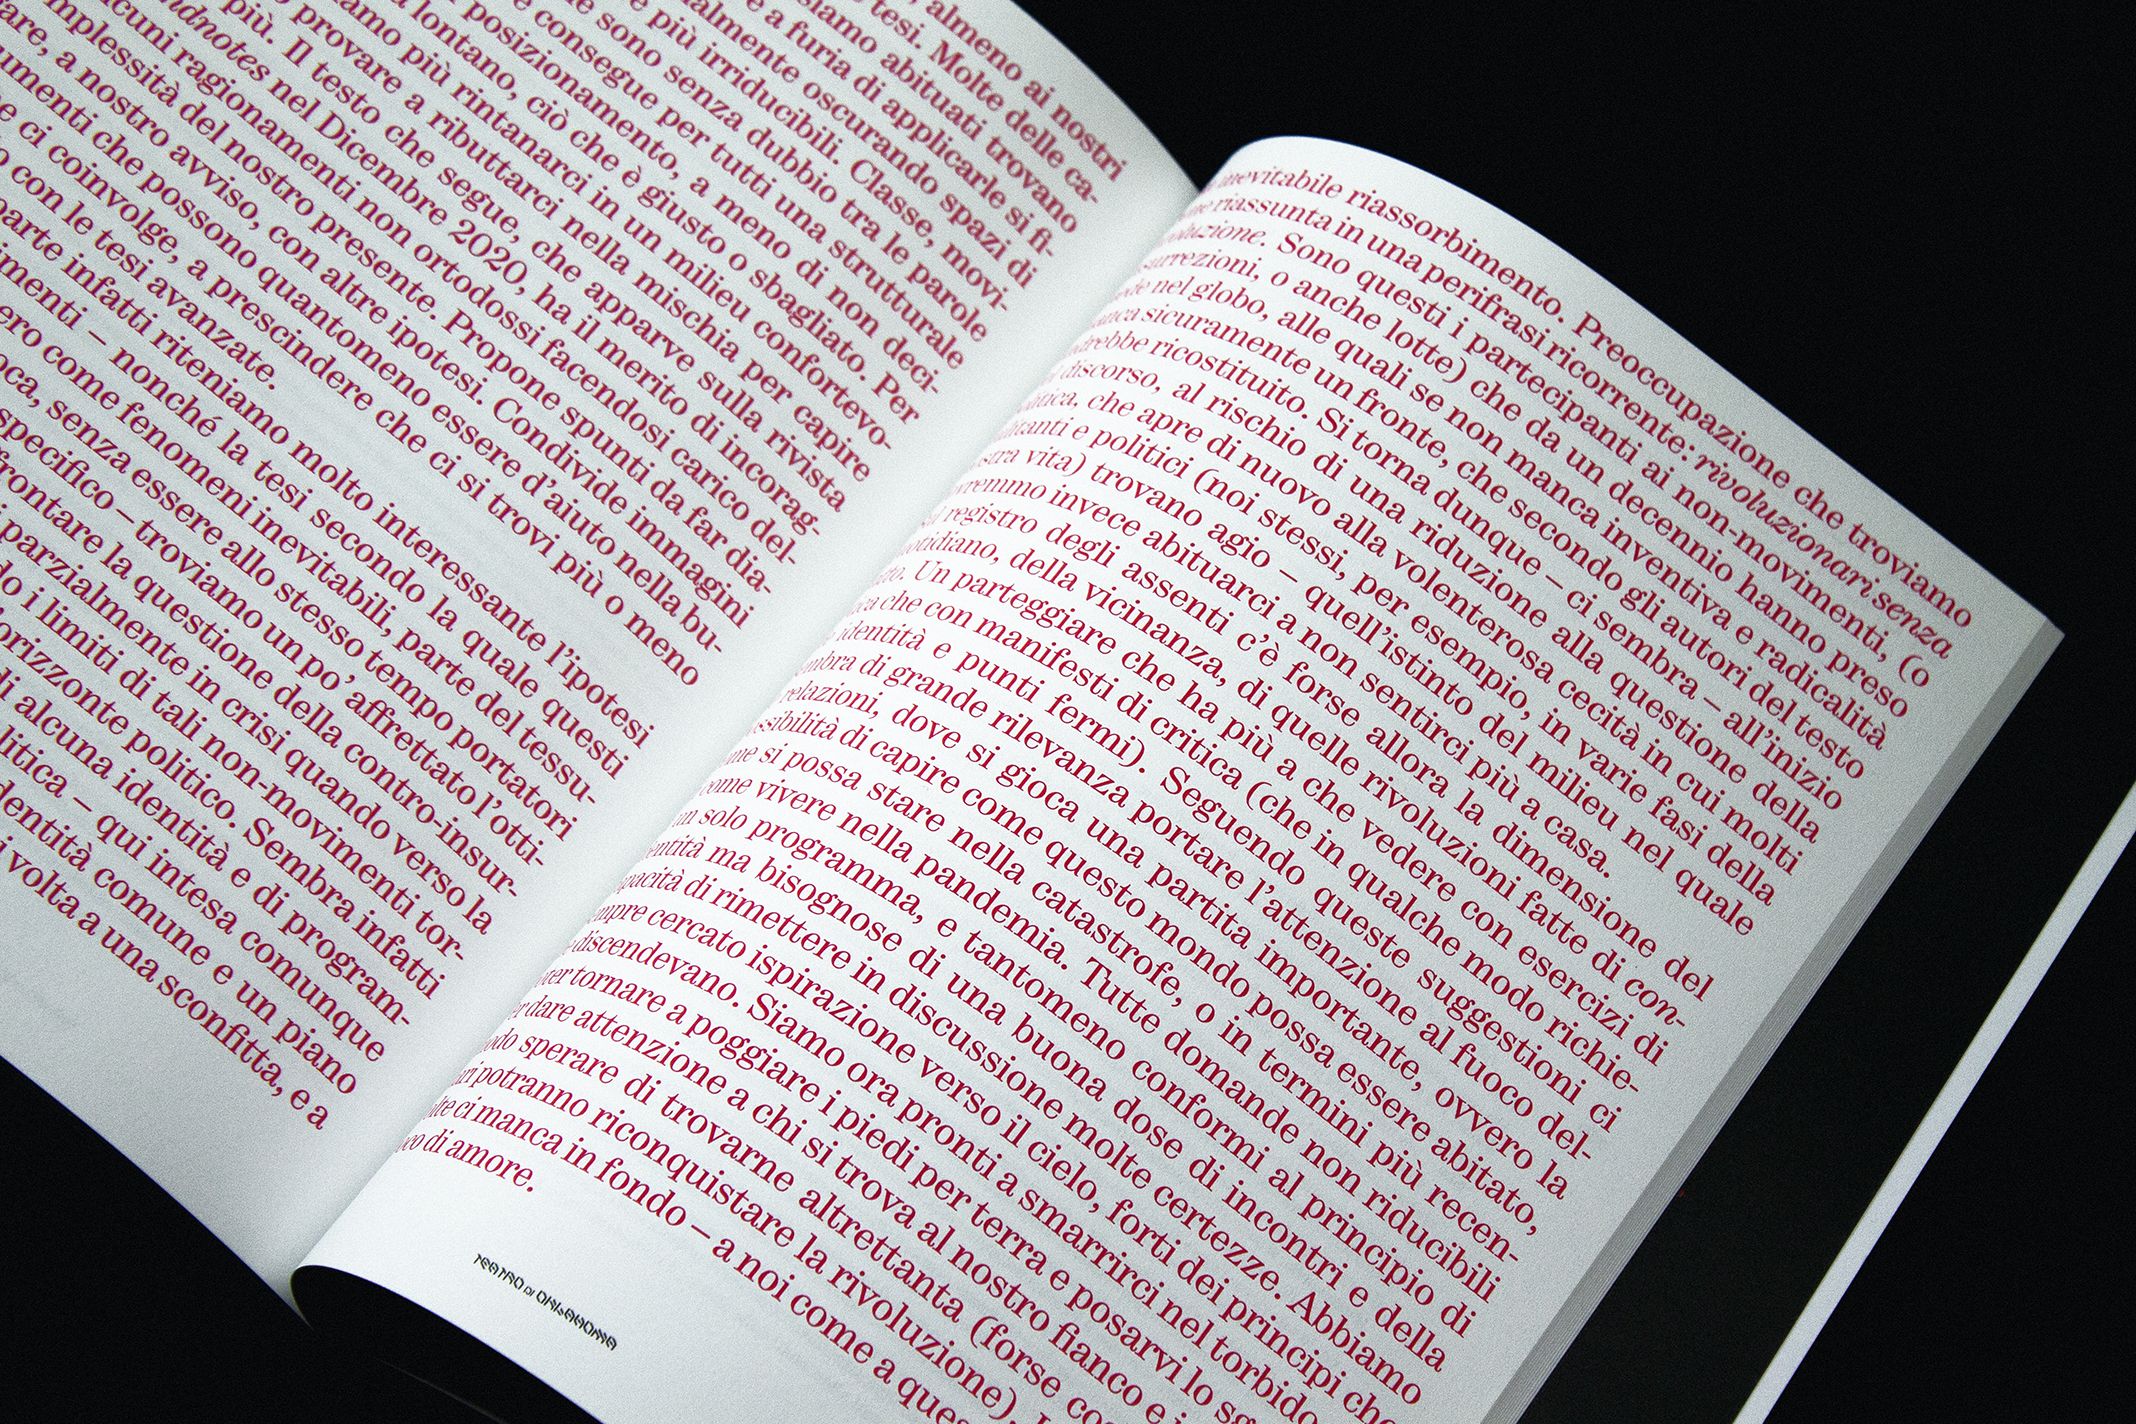 almeno ai nostri
tesi. Molte delle ca-
siamo abituati trovano
e a furia di applicarle si fi-
almente oscurando spazi di
e più irriducibili. Classe, movi-
e sono senza dubbio tra le parole
e consegue per tutti una strutturale
posizionamento, a meno di non deci-
lontano, ciò che è giusto o sbagliato. Per
amo più rintanarci in un milieu confortevo-
provare a ributtarci nella mischia per capire
più. Il testo che segue, che apparve sulla rivista
ndnotes nel Dicembre 2020, ha il merito di incorag-
cuni ragionamenti non ortodossi facendosi carico del-
mplessità del nostro presente. Propone spunti da far dia-
are, a nostro avviso, con altre ipotesi. Condivide immagini
umenti che possono quantomeno essere d'aiuto nella bu-
e ci coinvolge, a prescindere che ci si trovi più o meno
con le tesi avanzate.
parte infatti riteniamo molto interessante l'ipotesi
imenti – nonché la tesi secondo la quale questi
ero come fenomeni inevitabili, parte del tessu-
oca, senza essere allo stesso tempo portatori
specifico – troviamo un po' affrettato l'otti-
rontare la questione della contro-insur-
parzialmente in crisi quando verso la
do i limiti di tali non-movimenti tor-
orizzonte politico. Sembra infatti
di alcuna identità e di program-
litica – qui intesa comunque
dentità comune e un piano
volta a una sconfitta, e a
inevitabile riassorbimento. Preoccupazione che troviamo
riassunta in una perifrasi ricorrente: rivoluzionari senza
oluzione. Sono questi i partecipanti ai non-movimenti, (o
surrezioni, o anche lotte) che da un decennio hanno preso
nel globo, alle quali se non manca inventiva e radicalità
anca sicuramente un fronte, che secondo gli autori del testo
drebbe ricostituito. Si torna dunque – ci sembra – all'inizio
discorso, al rischio di una riduzione alla questione della
tica, che apre di nuovo alla volenterosa cecità in cui molti
tanti e politici (noi stessi, per esempio, in varie fasi della
stra vita) trovano agio – quell'istinto del milieu nel quale
vremmo invece abituarci a non sentirci più a casa.
registro degli assenti c'è forse allora la dimensione del
otidiano, della vicinanza, di quelle rivoluzioni fatte di con-
to. Un parteggiare che ha più a che vedere con esercizi di
che con manifesti di critica (che in qualche modo richie-
identità e punti fermi). Seguendo queste suggestioni ci
mbra di grande rilevanza portare l'attenzione al fuoco del-
relazioni, dove si gioca una partita importante, ovvero la
ssibilità di capire come questo mondo possa essere abitato,
me si possa stare nella catastrofe, o in termini più recen-
come vivere nella pandemia. Tutte domande non riducibili
un solo programma, e tantomeno conformi al principio di
entità ma bisognose di una buona dose di incontri e della
pacità di rimettere in discussione molte certezze. Abbiamo
mpre cercato ispirazione verso il cielo, forti dei principi che
discendevano. Siamo ora pronti a smarrirci nel torbido
per tornare a poggiare i piedi per terra e posarvi lo sg
er dare attenzione a chi si trova al nostro fianco e i
odo sperare di trovarne altrettanta (forse cos
ari potranno riconquistare la rivoluzione).
olte ci manca in fondo – a noi come a ques
co di amore.
TEATRO DI OKLAHOMA